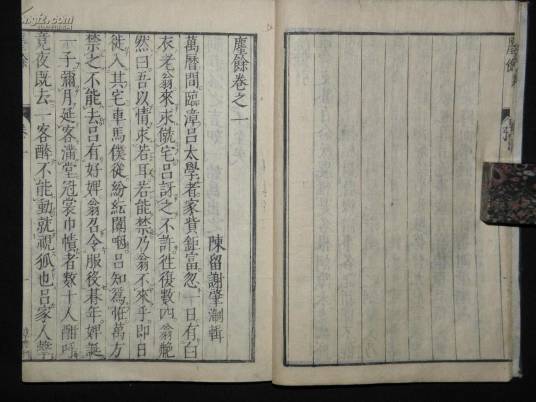 塵餘卷之一
陳留謝肇淛輯
萬曆間臨漳呂太學者家貲鉅富忽一日有白
衣老翁來求僦宅呂訝之不許往復數四翁艴
然曰吾以情求若耳若能禁乃翁不來乎即日
徙入其宅車馬僕從紛紜闐咽呂知爲怪萬方
禁之不能去呂有好婢翁召令服役朞年婢誕
一子彌月延客滿堂冠裳巾幘者數十人酣呼
竟夜既去一客醉不能動就視狐也呂家人